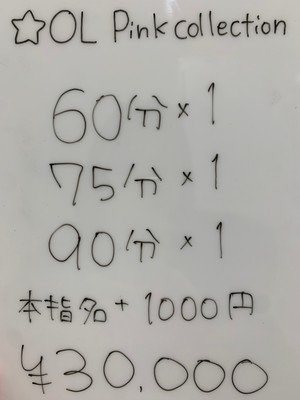 ☆OL Pink collection
60分×1
75分×1
90分×1
本指名+1000円
¥30,000